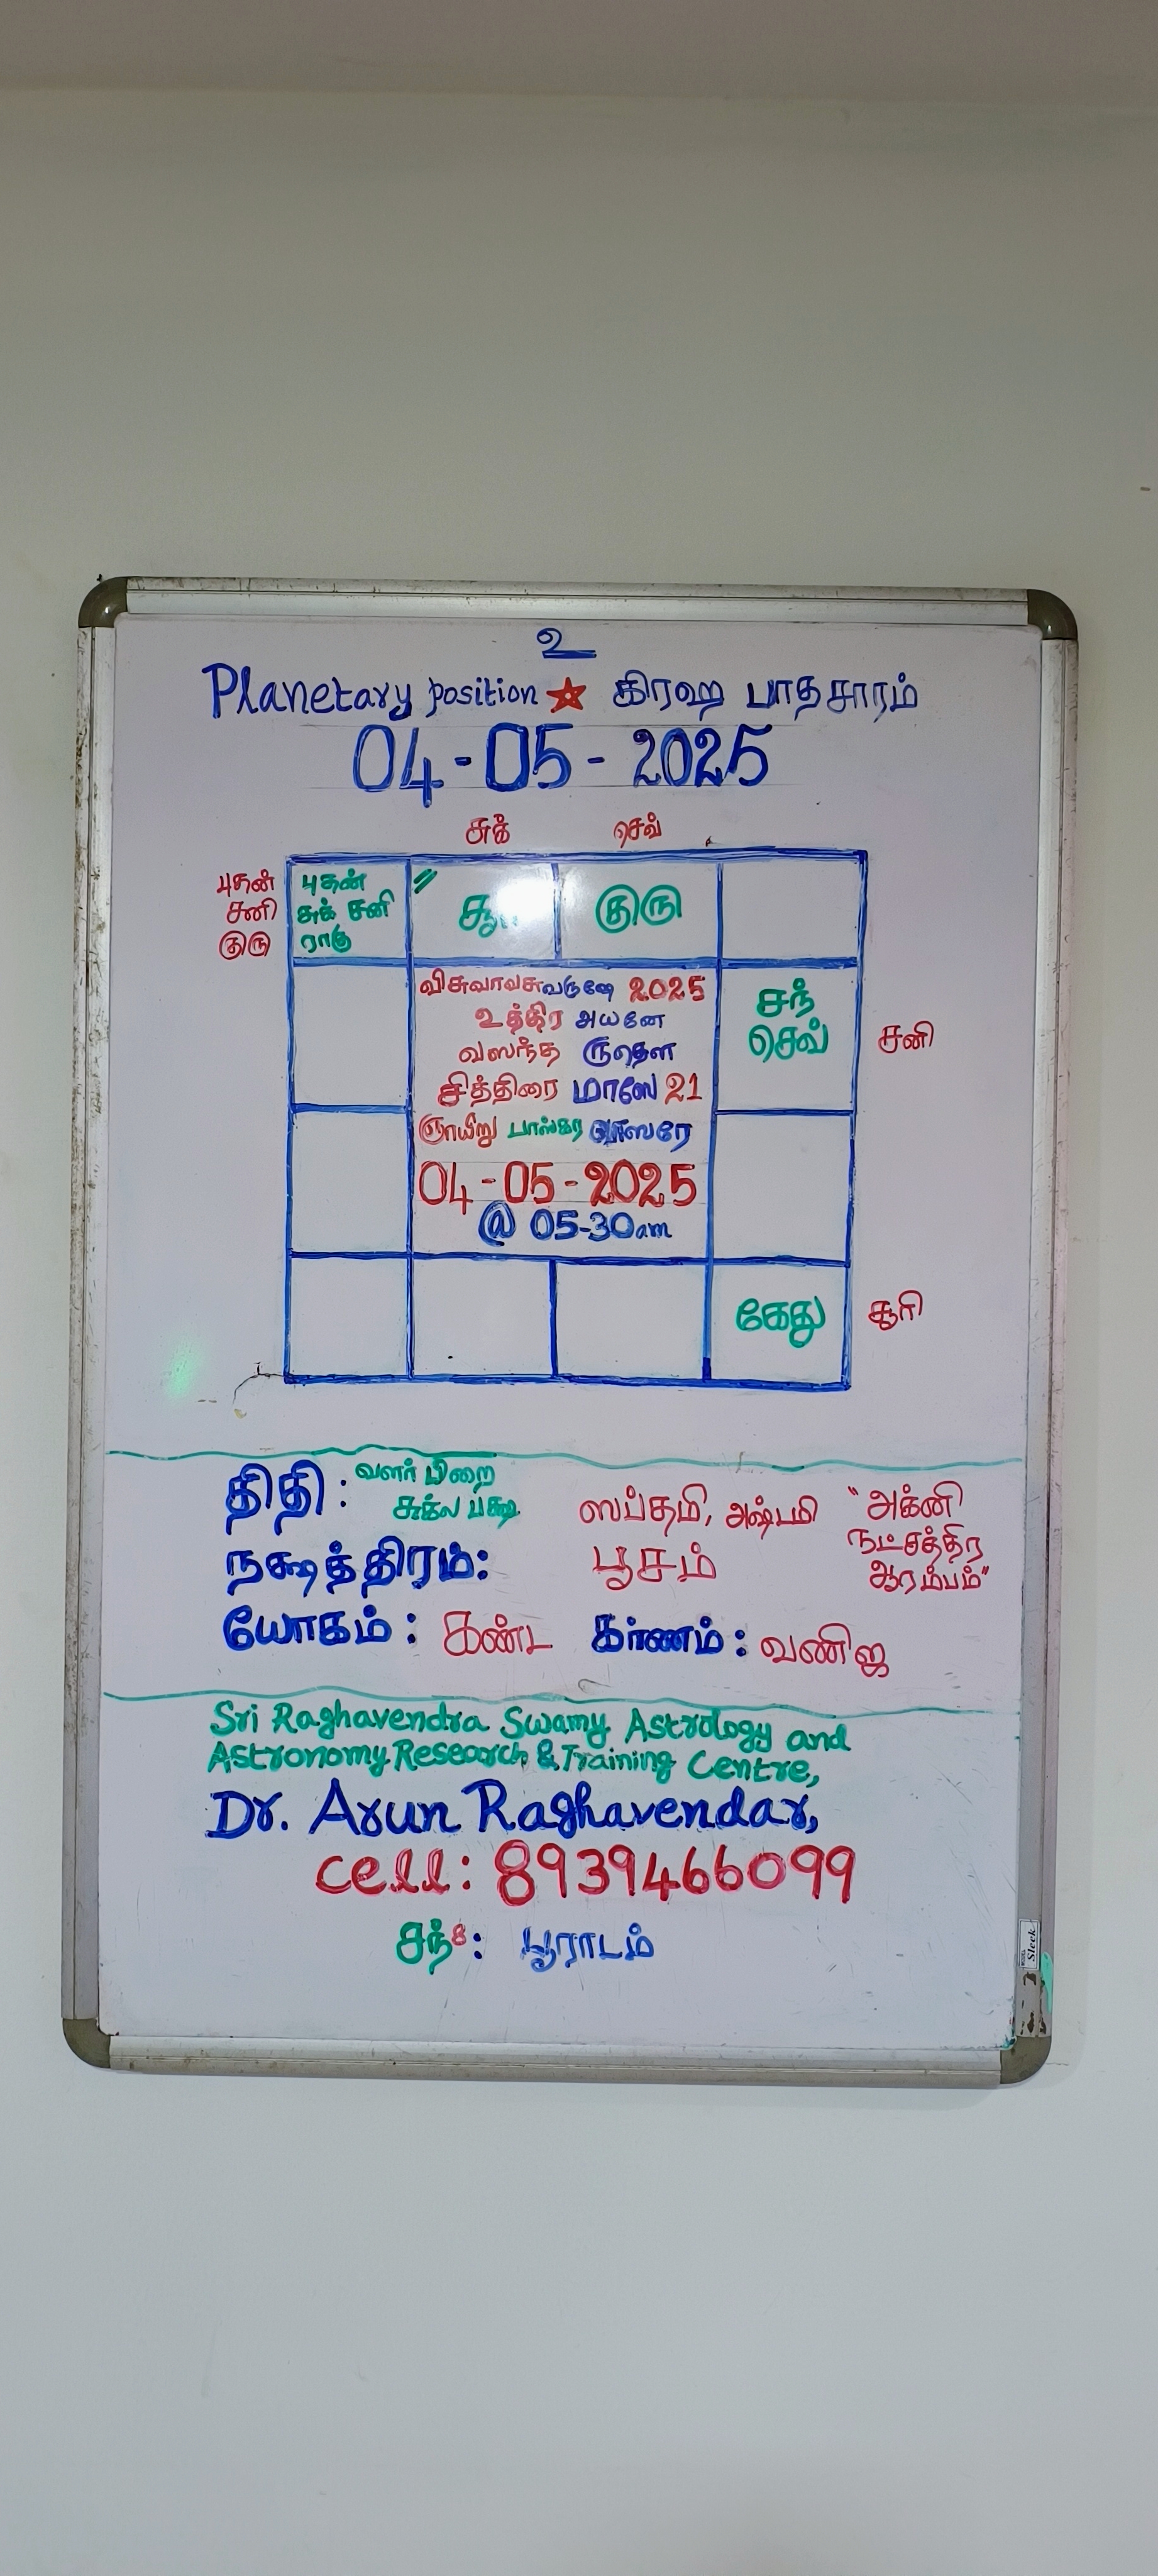 உ
Planetary position ★ கிரஹ பாதசாரம்
04-05-2025
சுக் செவ்
புதன்
சனி
குரு
புதன்
சுக் சனி
ராகு
குரு
விசுவாவசுவருஷே 2025
உத்திர அயனே
வஸந்த ருதௌ
சித்திரை மாஸே 21
ஞாயிறு பாஸ்கர வாஸரே
04-05-2025
@ 05-30am
சந்
செவ்
சனி
கேது
சூரி
திதி: வளர் பிறை
சுக்ல பக்ஷ
ஸப்தமி, அஷ்டமி
"அக்னி
நட்சத்திர
ஆரம்பம்"
நக்ஷத்திரம்: பூசம்
யோகம்: கண்ட கர்ணம்: வணிஜ
Sri Raghavendra Swamy Astrology and
Astronomy Research & Training Centre,
Dr. Arun Raghavendar,
Cell: 8939466099
சந்8: பூராடம்
Sleek